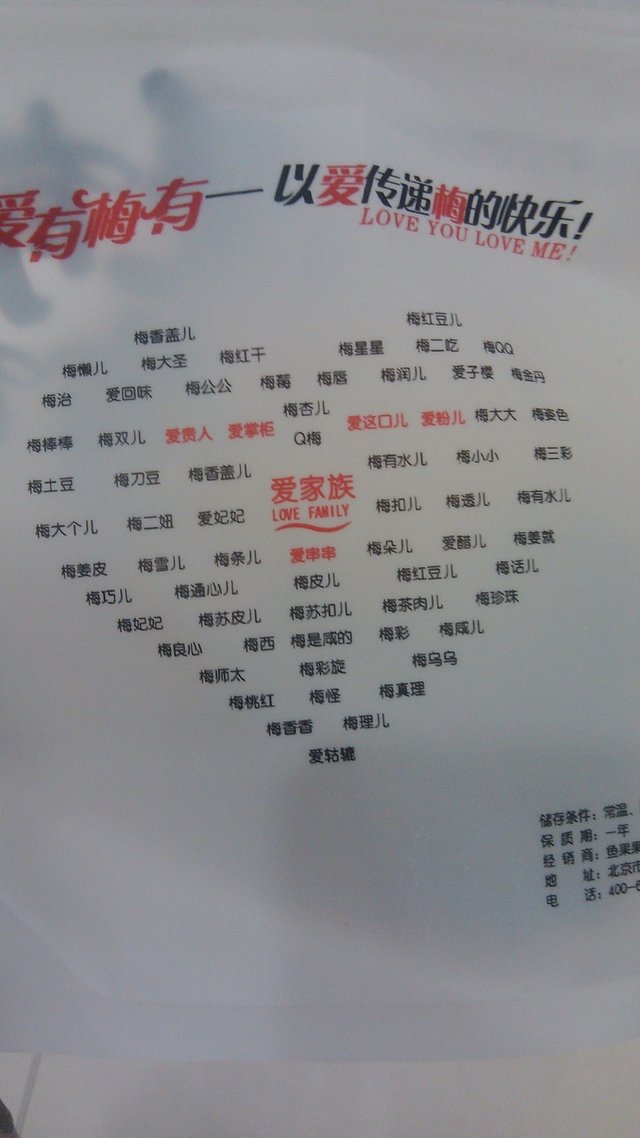 爱有梅有——以爱传递梅的快乐!
LOVE YOU LOVE ME!
梅香盖儿 梅红豆儿
梅懒儿 梅大圣 梅红干 梅星星 梅二吃 梅QQ
梅治 爱回味 梅公公 梅莓 梅唇 梅润儿 爱子樱 梅金丹
梅杏儿
梅棒棒 梅双儿 爱贵人 爱掌柜 Q梅 爱这口儿 爱粉儿 梅大大 梅姿色
梅土豆 梅刀豆 梅香盖儿 梅有水儿 梅小小 梅三彩
爱家族
LOVE FAMILY
梅大个儿 梅二妞 爱妃妃 梅扣儿 梅透儿 梅有水儿
梅姜皮 梅雪儿 梅条儿 爱串串 梅朵儿 爱醋儿 梅姜就
梅巧儿 梅通心儿 梅皮儿 梅红豆儿 梅话儿
梅妃妃 梅苏皮儿 梅苏扣儿 梅茶肉儿 梅珍珠
梅良心 梅西 梅是咸的 梅彩 梅咸儿
梅师太 梅彩旋 梅乌乌
梅桃红 梅怪 梅真理
梅香香 梅理儿
爱轱辘
储存条件：常温、
保质期：一年
经销商：鱼果果
地址：北京市
电话：400-6